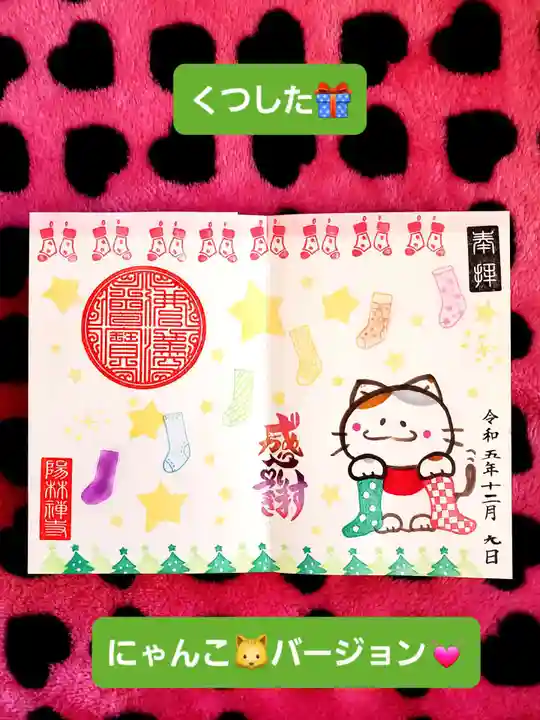 くつした🎁
奉拝
令和五年十二月九日
感謝
陽林禅寺
にゃんこ🐱バージョン💓